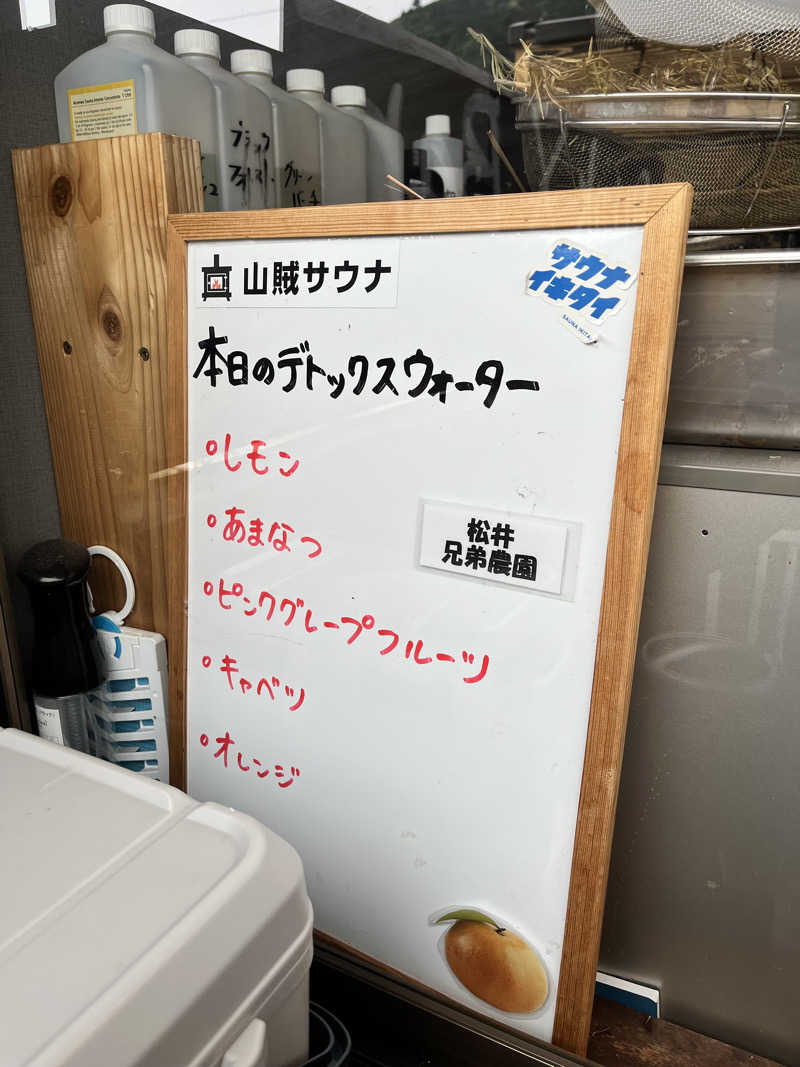 ブラック
フォレスト
山賊サウナ
サウナ
イキタイ
SAUNA IKITAI
本日のデトックスウォーター
•レモン
•あまなつ
松井
兄弟農園
•ピンクグレープフルーツ
•キャベツ
•オレンジ